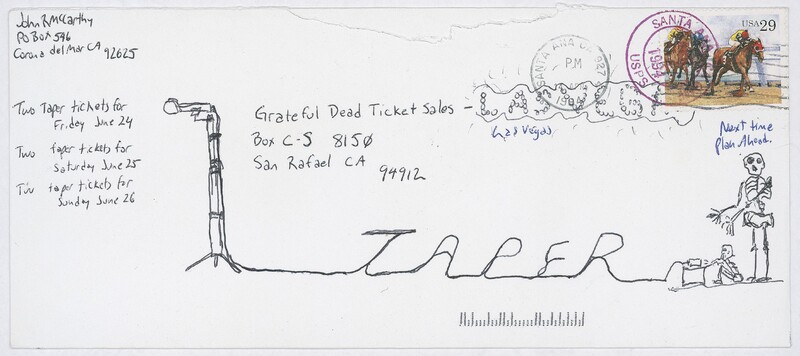 John B McCarthy
PO Box 596
Corona del Mar CA 92625
Two Taper tickets for
Friday June 24
Two taper tickets for
Saturday June 25
Two taper tickets for
Sunday June 26
Grateful Dead Ticket Sales –
Box C-S 8150
San Rafael CA
94912
Las Vegas
SANTA ANA CA 927
PM
1994
SANTA ANA
1994
USPS
USA 29
Next time
plan Ahead.
TAPER